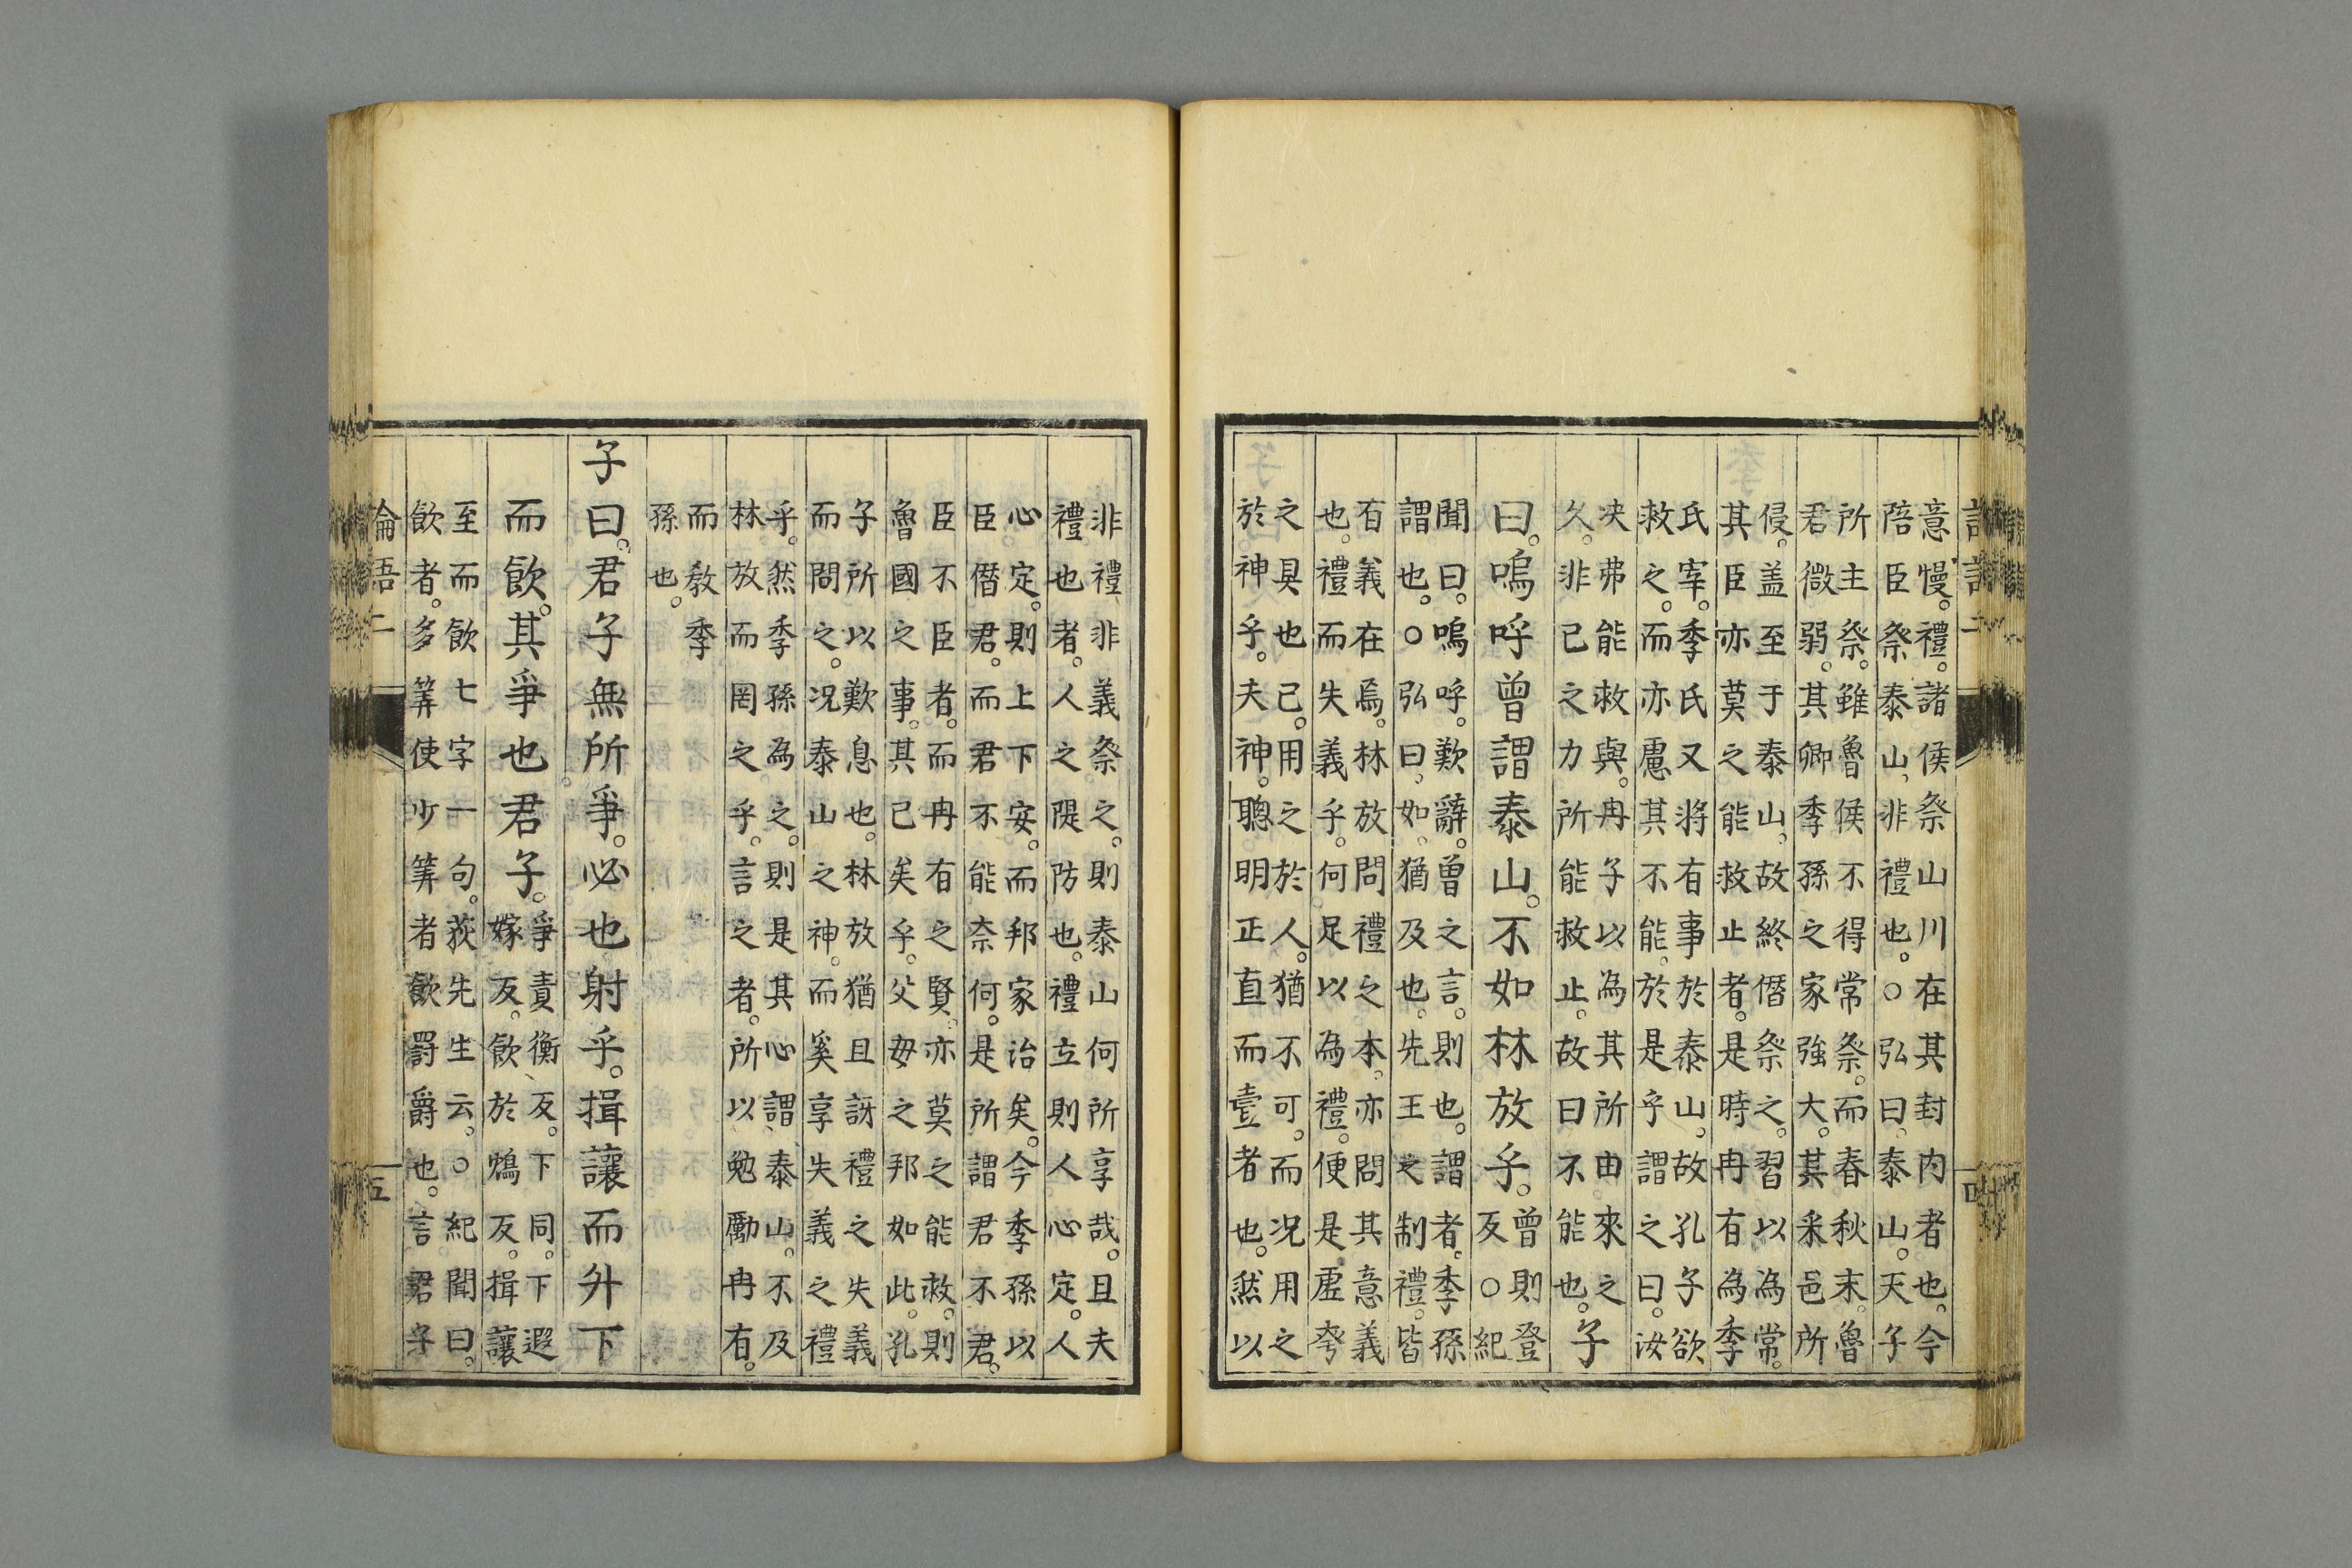 意慢。禮。諸侯祭山川在其封内者也。今
陪臣祭泰山、非禮也。○弘曰、泰山。天子
所主祭。雖魯侯不得常祭。而春秋末。魯
君微弱。其卿季孫之家強大。其采邑所
侵。盖至于泰山。故終僭祭之。習以為常。
其臣亦莫之能救止者。是時冉有為季
氏宰。季氏又將有事於泰山。故孔子欲
救之。而亦慮其不能。於是乎謂之曰。汝
决弗能救與。冉子以為其所由來之
久。非己之力所能救止。故曰不能也。子
曰。嗚呼曾謂泰山。不如林放乎。曾則登
反○紀
聞曰。嗚呼。歎辭。曾之言。則也。謂者。季孫
謂也。○弘曰、如。猶及也。先王之制禮。皆
有義在焉。林放問禮之本、亦問其意義
也。禮而失義乎。何足以為禮。便是虛夸
之具也已。用用之於人。猶不可。而况用之
於神乎。夫神。聰明正直而壹者也。然以
非禮非義祭之。則泰山何所享哉。且夫
禮也者。人之隄防也。禮立則人心定。人
心定。則上下安。而邦家治矣。今季孫以
臣僭君。而君不能奈何。是所謂君不君。
臣不臣者。而冉有之賢。亦莫之能救。則
魯國之事。其已矣乎。父母之邦如此。孔
子所以歎息也。林放猶且訝禮之失義
而問之。况泰山之神。而奚享失義之禮
乎。然季孫為之。則是其心謂、泰山。不及
林放而罔之乎。言之者。所以勉勵冉有。
而教季
孫也。
子曰。君子無所爭。必也射乎。揖讓而升下
而飲。其爭也君子。爭責衡反。下同。下遐
嫁反。飲於鴆反。揖讓
至而飲七字一句。荻先生云。○紀聞曰。
飲者。多筭使少筭者飲罰爵也。言君子
論語二
五